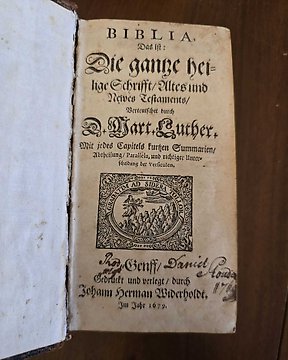 BIBLIA,
Das ist:
Die gantze hei-
lige Schrifft/Altes und
Newes Testaments/
Verteutschet durch
D. Mart. Luther.
Mit jedes Capitels kurtzen Summarien/
Abtheilung/Parallela, und richtiger Unter-
scheidung der Versiculen.
AD SIDERA
Genff/ Daniel
Gedruckt und verlegt/durch
Johann Herman Widerholdt.
Im Jahr 1679.